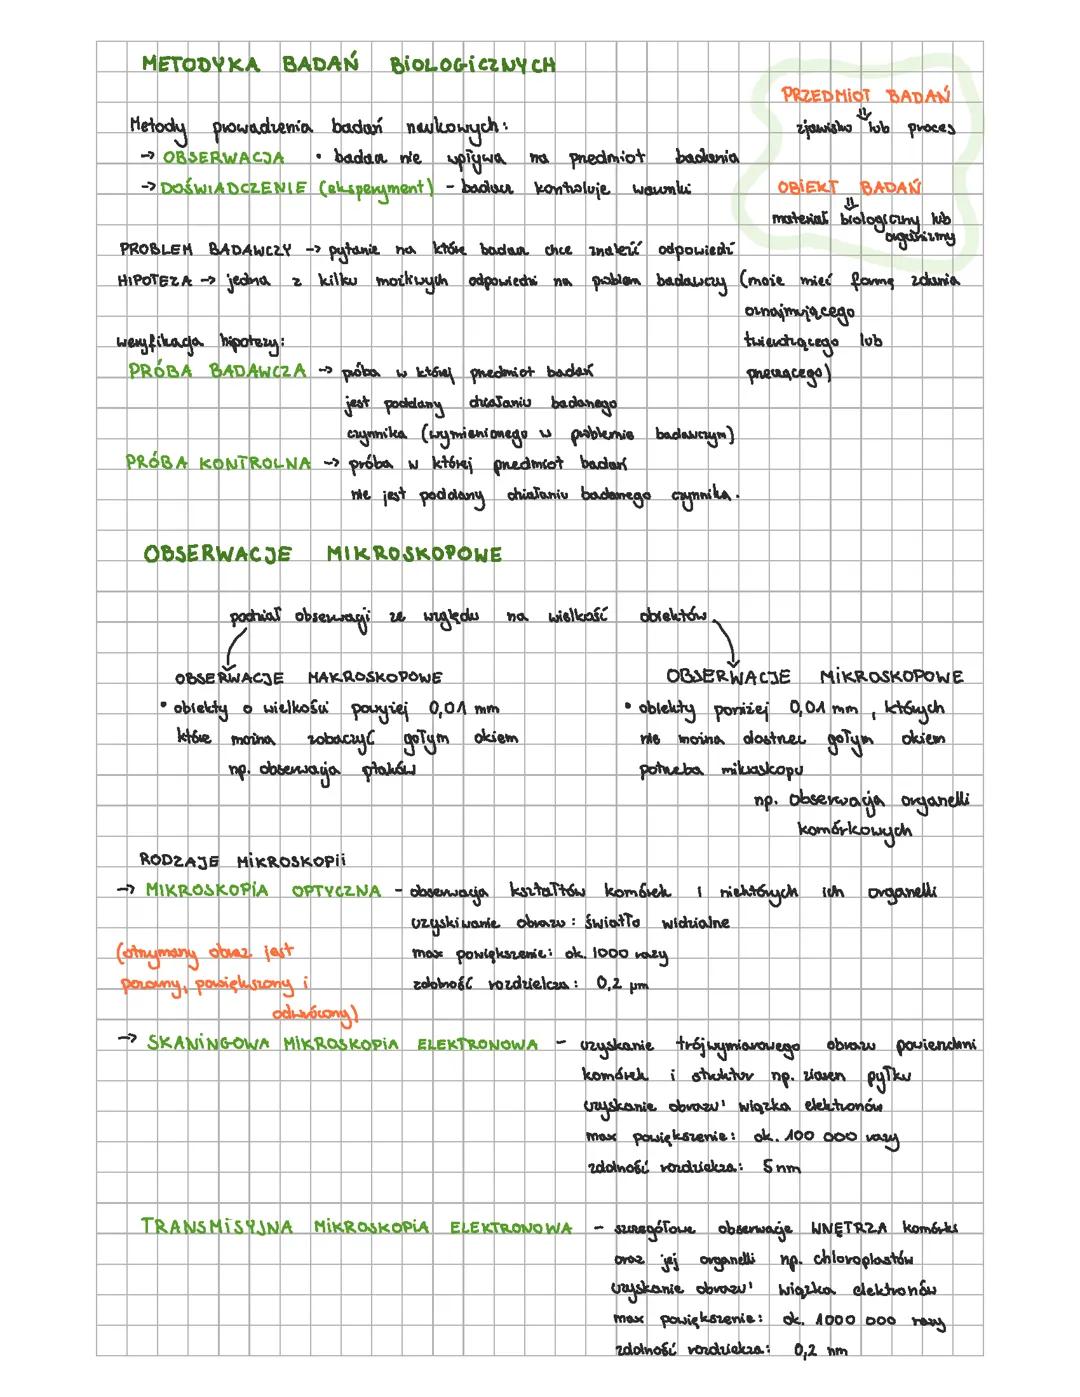 METODYKA BADAŃ BIOLOGICZNYCH
PRZEDMIOT BADAŃ
⇓
zjawisko lub proces
OBIEKT BADAŃ
⇓
materiał biologiczny lub
organizmy
Metody prowadzenia badań naukowych:
→ OBSERWACJA • badacz nie wpływa na przedmiot badania
→ DOŚWIADCZENIE (eksperyment) - badacz kontroluje warunki
PROBLEM BADAWCZY → pytanie na które badacz chce znaleźć odpowiedź
HIPOTEZA → jedna z kilku możliwych odpowiedzi na problem badawczy (może mieć formę zdania
oznajmującego
twierdzącego lub
przeczącego)
weryfikacja hipotezy:
PRÓBA BADAWCZA → próba w której przedmiot badań
jest poddany działaniu badanego
czynnika (wymienionego w problemie badawczym)
PRÓBA KONTROLNA → próba w której przedmiot badań
nie jest poddany działaniu badanego czynnika.
OBSERWACJE MIKROSKOPOWE
podział obserwacji ze względu na wielkość obiektów
OBSERWACJE MAKROSKOPOWE
• obiekty o wielkości powyżej 0,01 mm
które można zobaczyć gołym okiem
np. obserwacja ptaków
OBSERWACJE MIKROSKOPOWE
• obiekty poniżej 0,01 mm, których
nie można dostrzec gołym okiem
potrzeba mikroskopu
np. obserwacja organelli
komórkowych
RODZAJE MIKROSKOPII
→ MIKROSKOPIA OPTYCZNA - obserwacja kształtów komórek i niektórych ich organelli
uzyskiwanie obrazu: światło widzialne
max powiększenie: ok. 1000 razy
zdolność rozdzielcza: 0,2 μm
(otrzymany obraz jest
pozorny, powiększony i
odwrócony)
→ SKANINGOWA MIKROSKOPIA ELEKTRONOWA - uzyskanie trójwymiarowego obrazu powierzchni
komórek i struktur np. ziaren pyłku
uzyskanie obrazu: wiązka elektronów
max powiększenie: ok. 100 000 razy
zdolność rozdzielcza: 5 nm
TRANSMISYJNA MIKROSKOPIA ELEKTRONOWA - szczegółowe obserwacje WNĘTRZA komórki
oraz jej organelli np. chloroplastów
uzyskanie obrazu: wiązka elektronów
max powiększenie: ok. 1000 000 razy
zdolność rozdzielcza: 0,2 nm